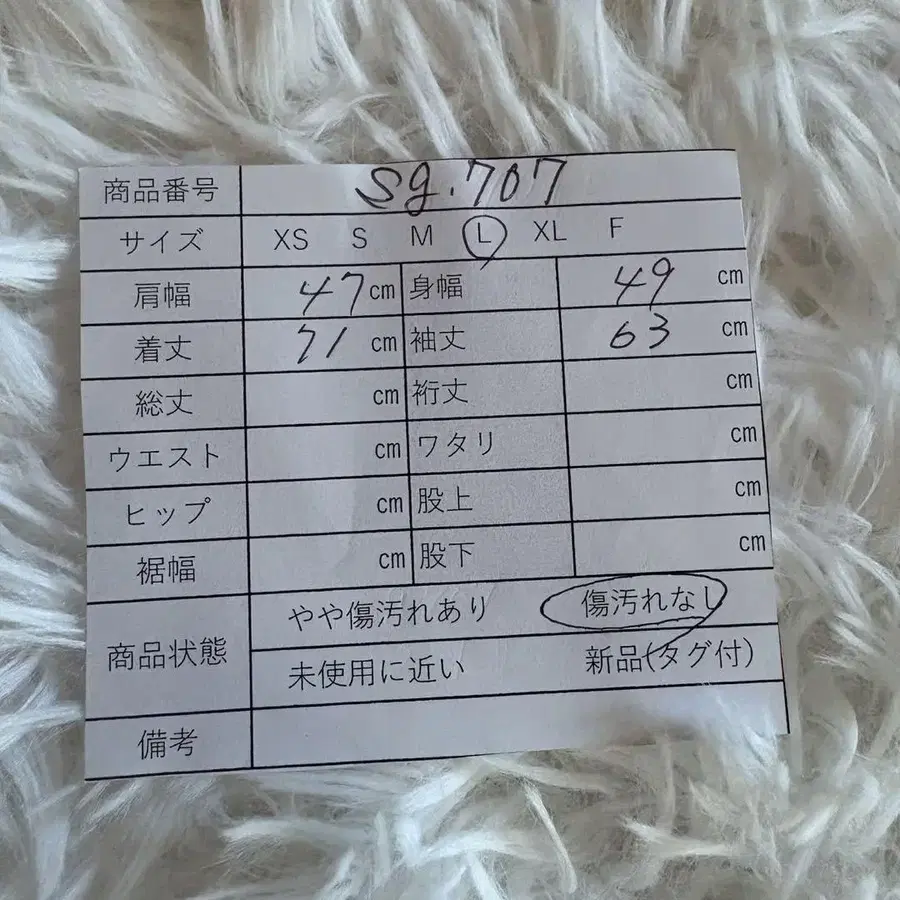 商品番号 Sg.707
サイズ XS S M L XL F
肩幅 47 cm 身幅 49 cm
着丈 71 cm 袖丈 63 cm
総丈 cm 裄丈 cm
ウエスト cm ワタリ cm
ヒップ cm 股上 cm
裾幅 cm 股下 cm
商品状態 やや傷汚れあり 傷汚れなし
未使用に近い 新品(タグ付)
備考